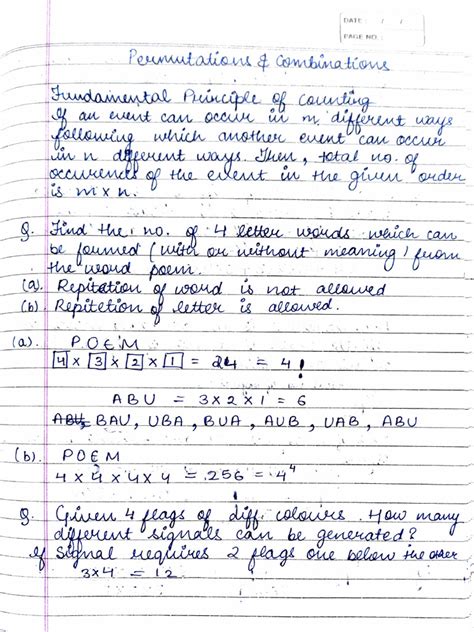 DATE : / /
PAGE NO. :
Permutations & Combinations
Fundamental Principle of Counting
If an event can occur in m different ways
following which another event can occur
in n different ways. Then, total no. of
occurences of the event in the given order
is m x n.
Q. Find the no. of 4 letter words which can
be formed (with or without meaning) from
the word poem.
(a). Repitation of word is not allowed
(b). Repitetion of letter is allowed.
(a). POEM
4 x 3 x 2 x 1 = 24 = 4!
ABU = 3 x 2 x 1 = 6
BAU, UBA, BUA, AUB, UAB, ABU
(b). POEM
4 x 4 x 4 x 4 = 256 = 4⁴
Q. Given 4 flags of diff. colours. How many
different signals can be generated?
If signal requires 2 flags one below the other
3x4 = 12